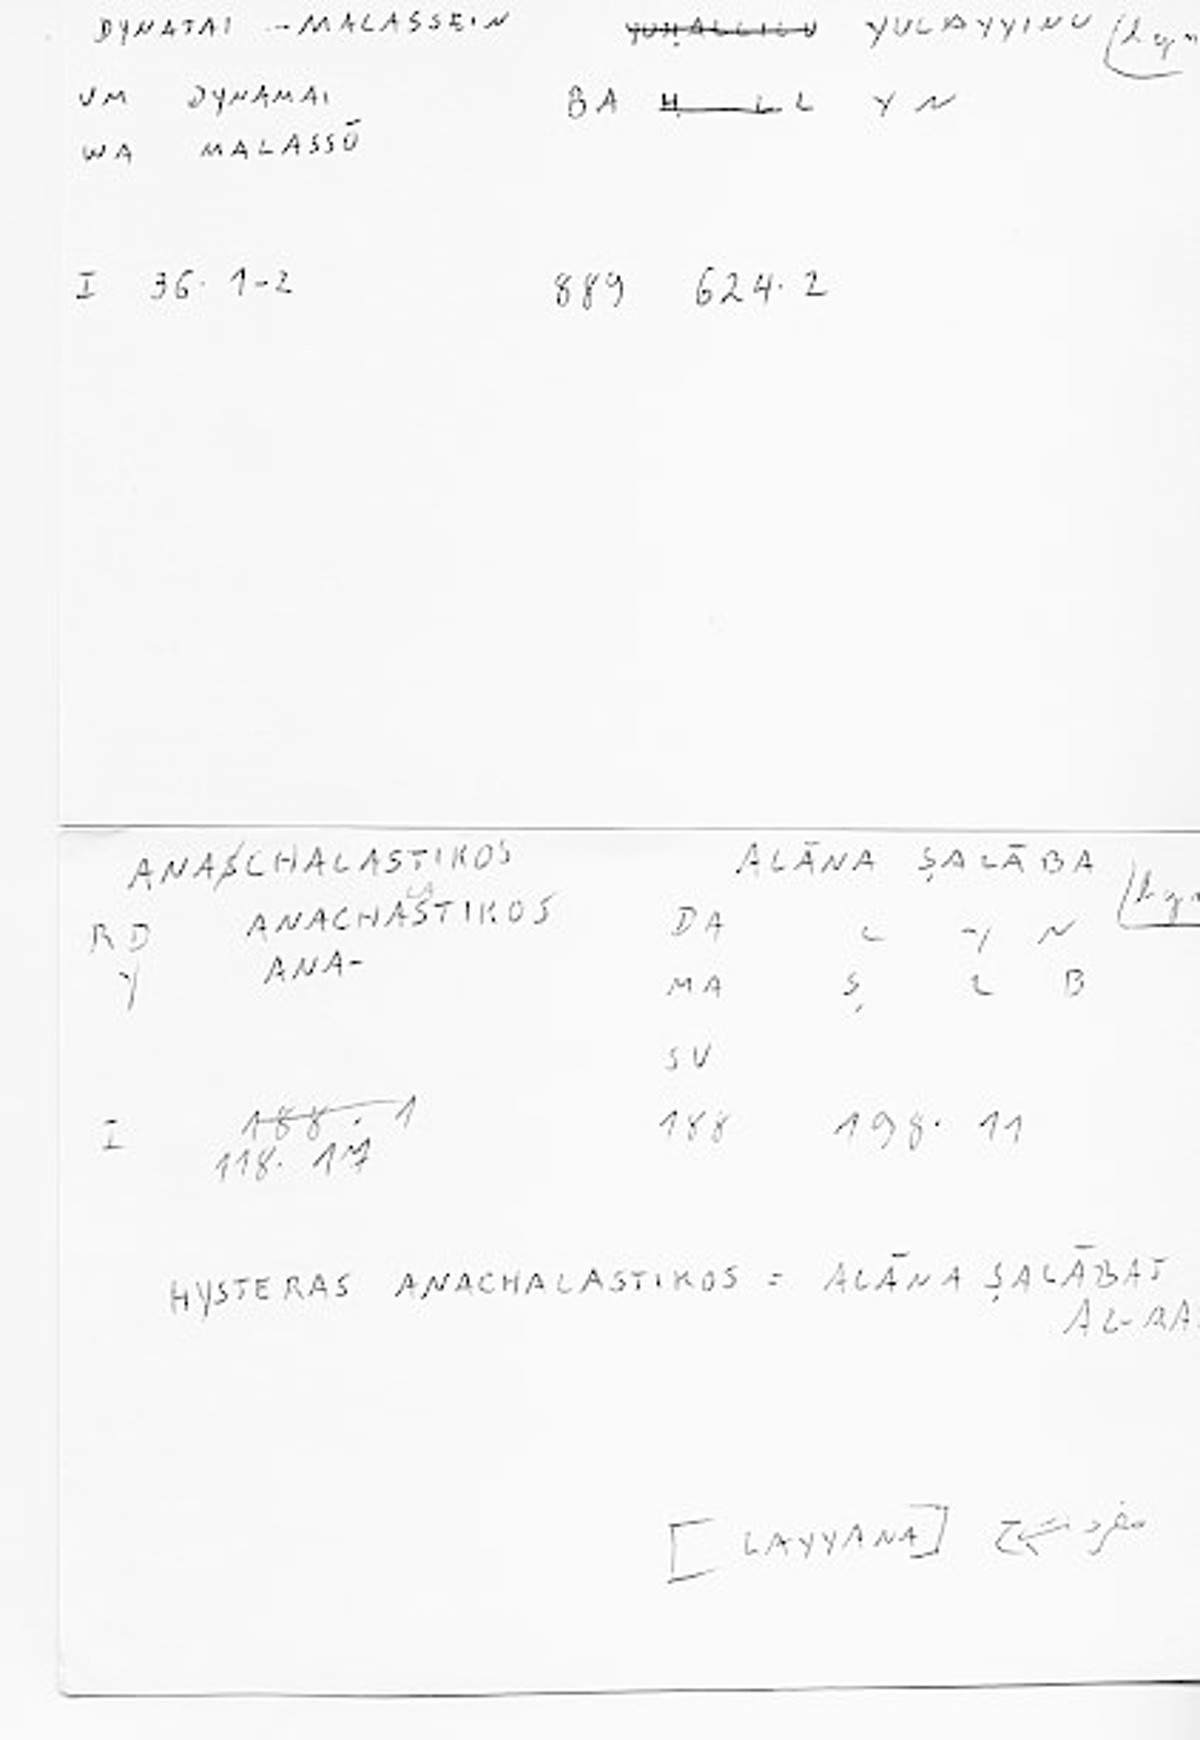 DYNATAI - MALASSEIN YUḤALLILU YULAYYINU
VM DYNAMAI BA Ḥ L L Y N
WA MALASSŌ
I 36. 1-2 889 624. 2
ANASCHALASTIKOS ALĀNA ṢALĀBA
RD ANACHASTIKOS DA L Y N
LA
Y ANA- MA Ṣ L B
SV
I 188. 1 188 198. 11
118. 17
HYSTERAS ANACHALASTIKOS = ALĀNA ṢALĀBAT
AL-RA
[LAYYANA]